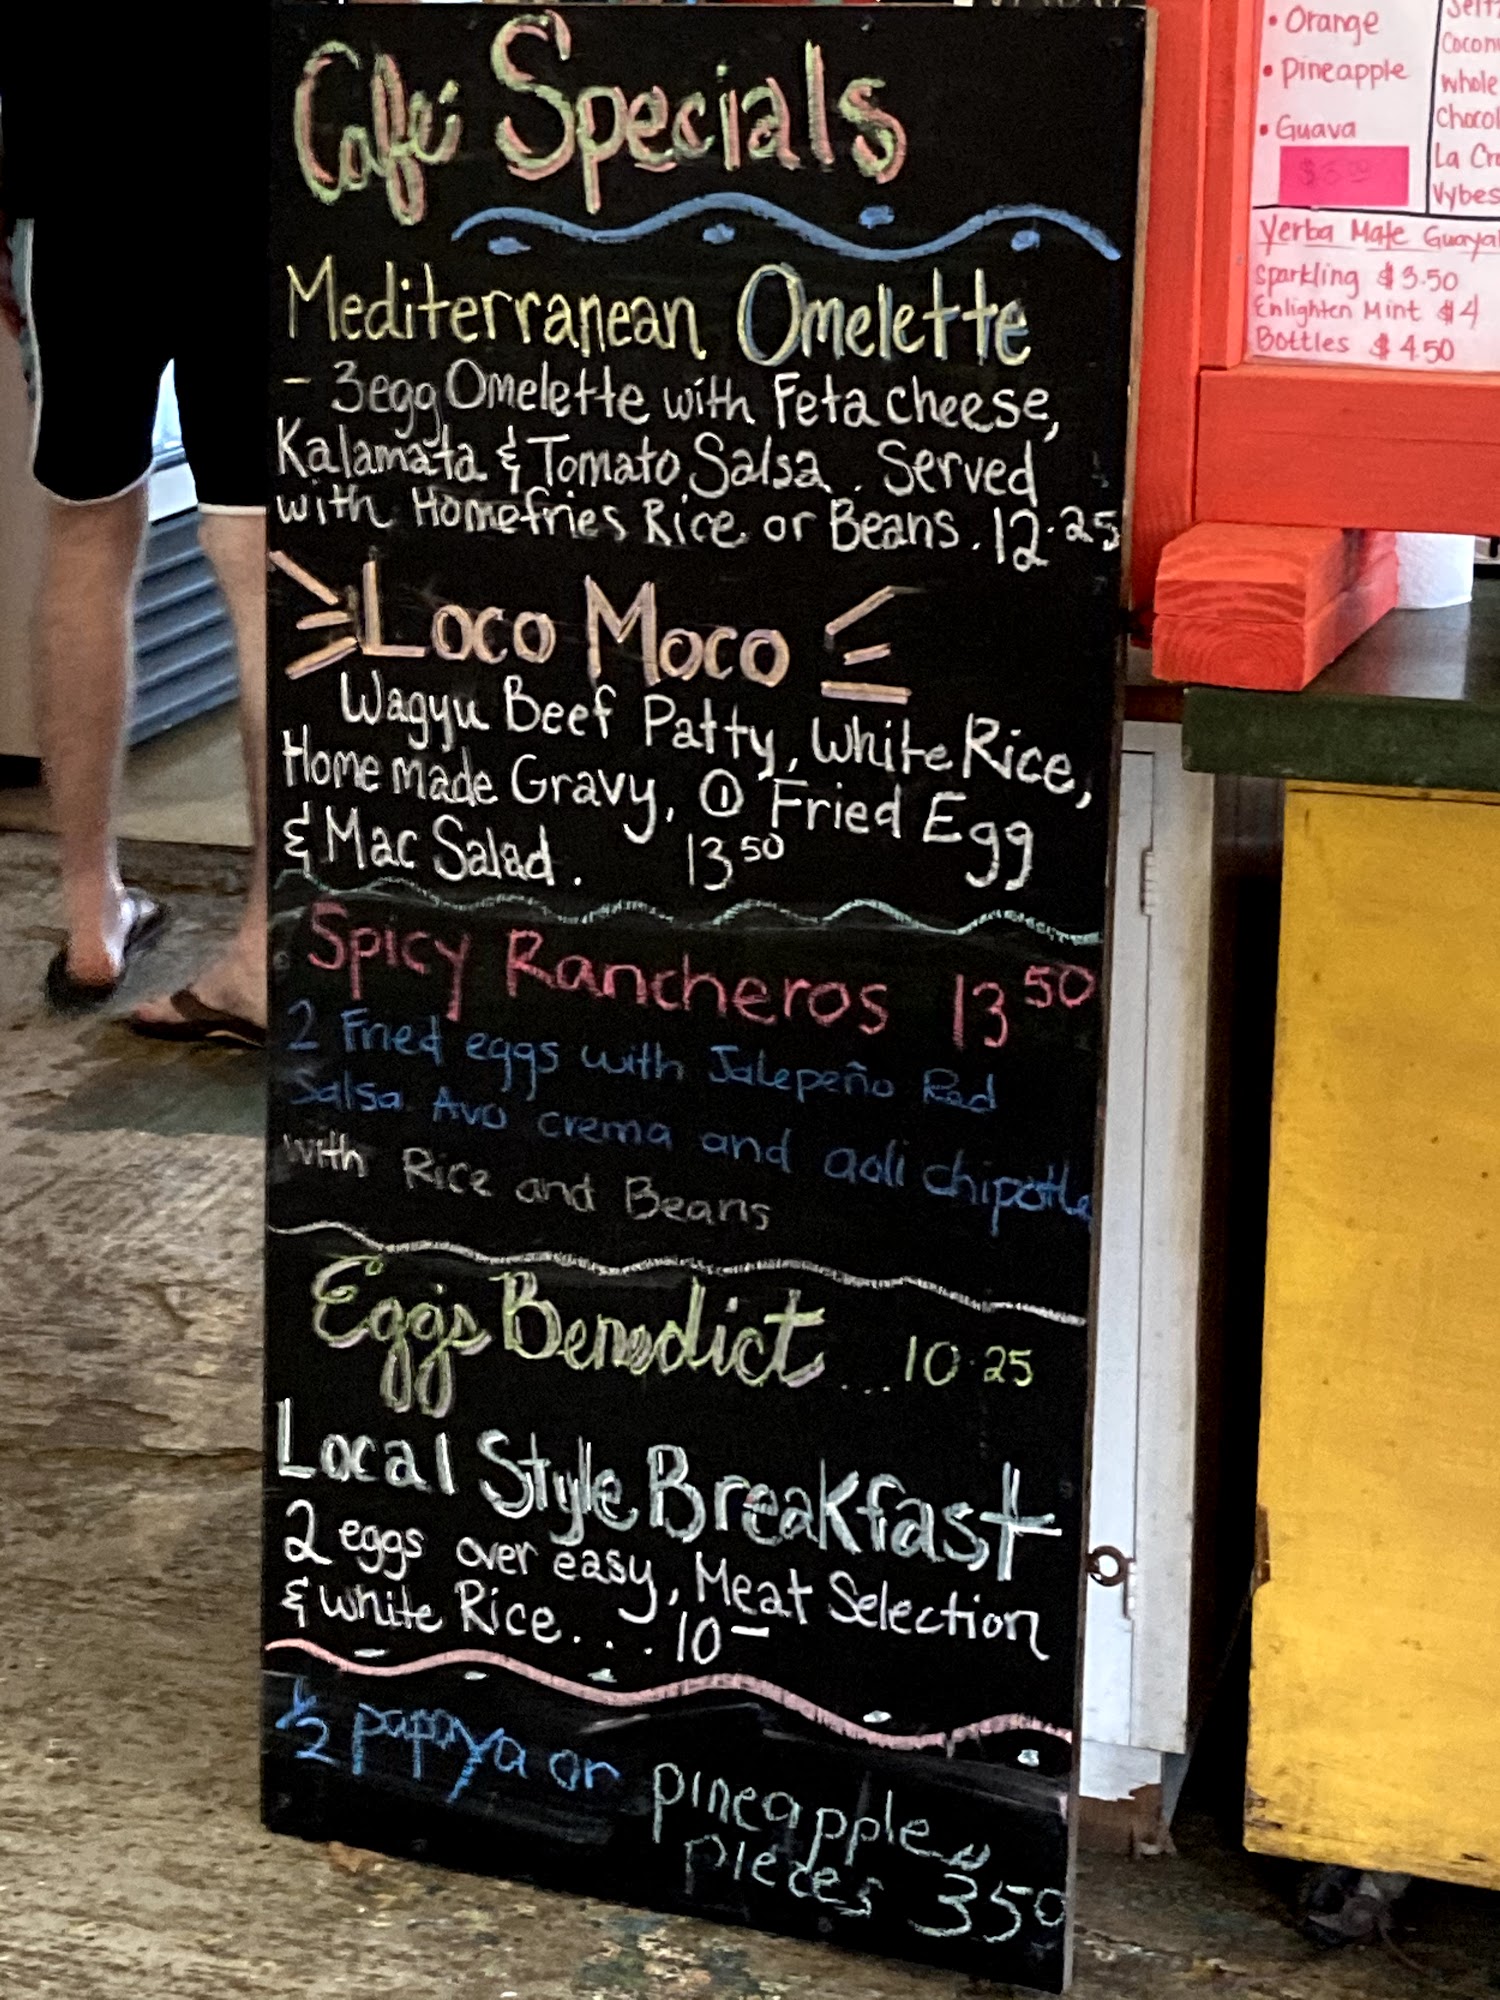 Café Specials
Mediterranean Omelette
- 3egg Omelette with Feta cheese,
Kalamata & Tomato Salsa. Served
with Homefries Rice or Beans. 12.25
Loco Moco
Wagyu Beef Patty, White Rice,
Home made Gravy, ① Fried Egg
& Mac Salad. 13 50
Spicy Rancheros 13 50
2 Fried eggs with Jalepeño Red
Salsa Avo crema and aoli chipotle
with Rice and Beans
Eggs Benedict .... 10.25
Local Style Breakfast
2 eggs over easy, Meat Selection
& white Rice.... 10-
1/2 papaya or pineapple
pieces 350
• Orange
• Pineapple
• Guava
Seltz
Cocon
whole
Chocol
La Cro
Vybes
Yerba Mate Guayal
sparkling $3.50
Enlighten Mint $4
Bottles $4.50